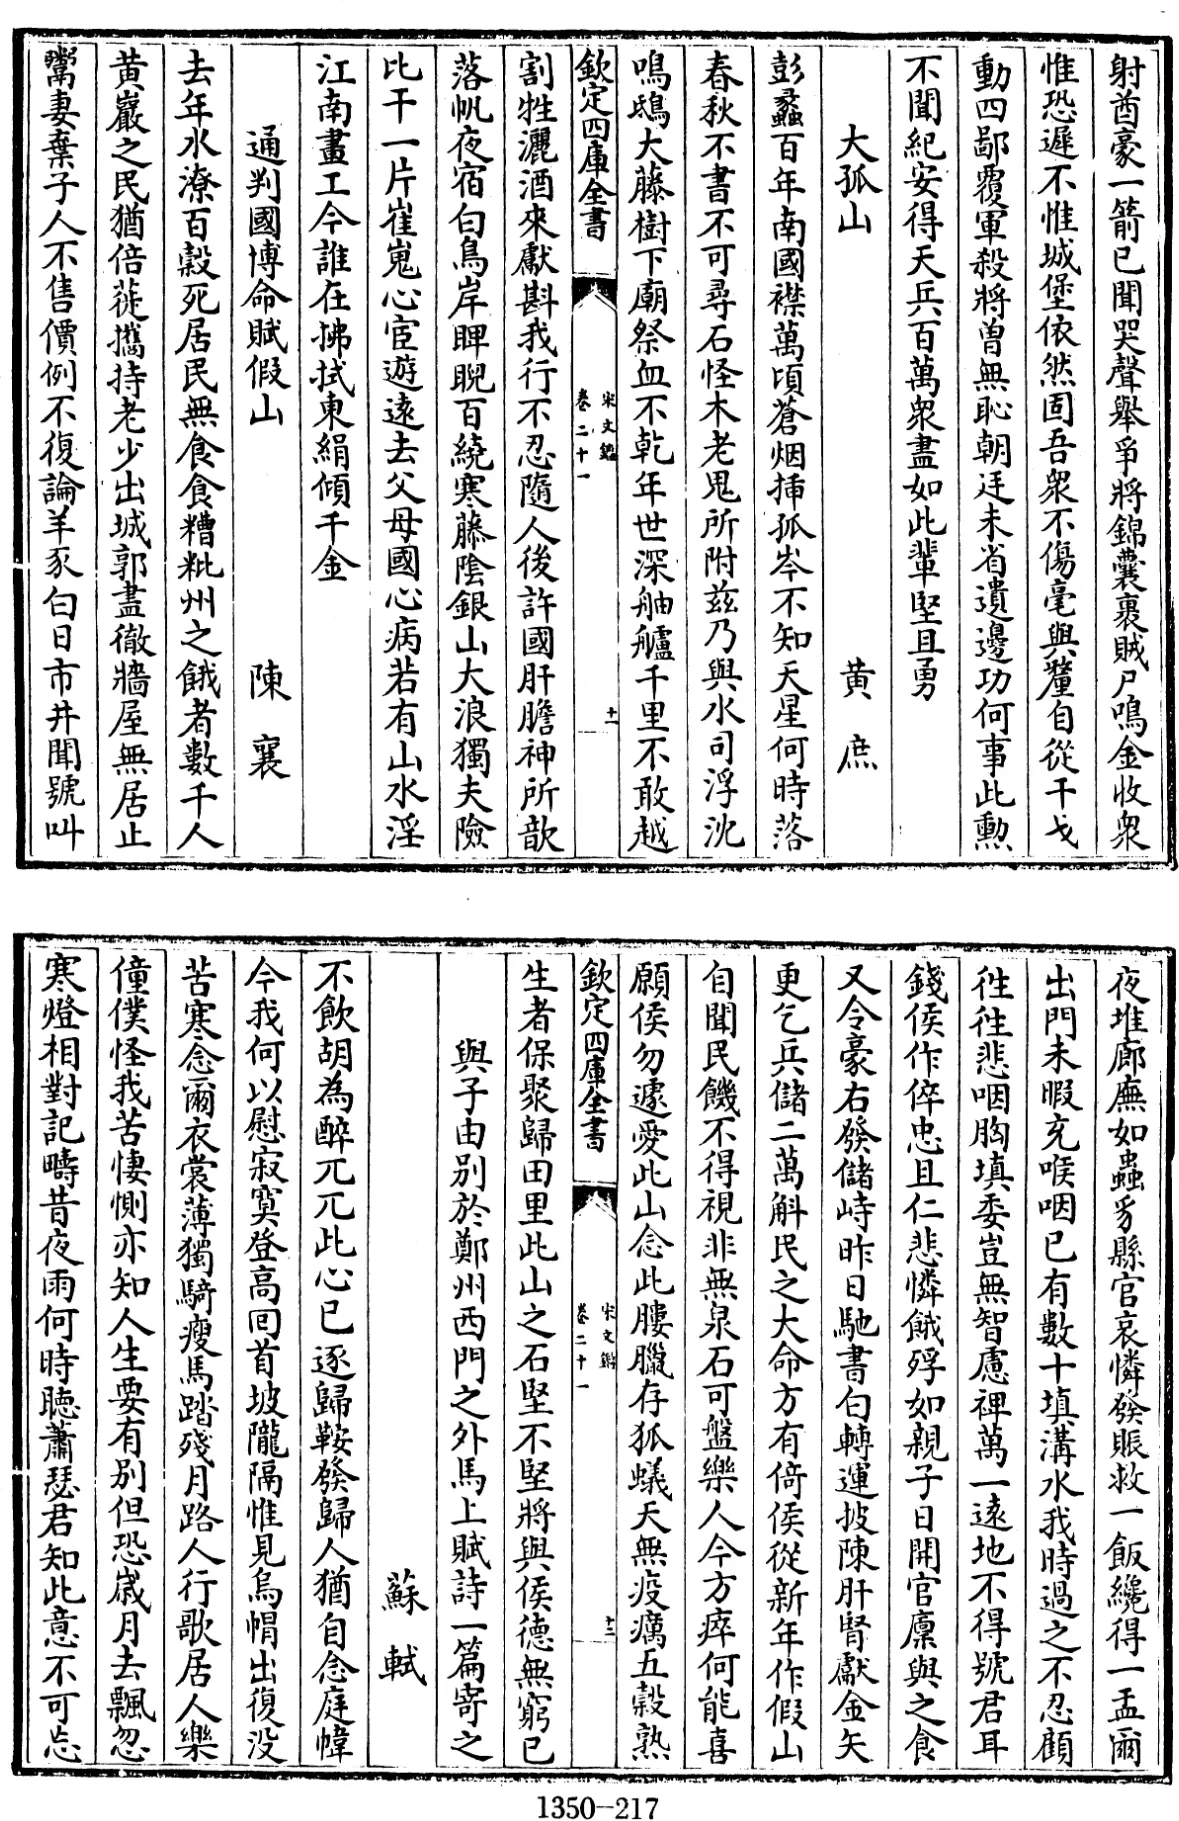 射酋豪一箭已聞哭聲舉爭將錦囊裹賊尸鳴金收衆
惟恐遲不惟城堡依然固吾衆不傷毫與釐自從干戈
動四鄙覆軍殺將曽無恥朝廷未省遺邊功何事此勲
不聞紀安得天兵百萬衆盡如此輩堅且勇
大孤山
黄庶
彭蠡百年南國襟萬頃蒼烟揷孤岑不知天星何時落
春秋不書不可尋石怪木老鬼所附兹乃與水司浮沈
鳴鴟大藤樹下廟祭血不乾年世深舳艫千里不敢越
欽定四庫全書
宋文鑑
卷二十一
十一
割牲灑酒來獻斟我行不忍隨人後許國肝膽神所歆
落帆夜宿白鳥岸睥睨百繞寒藤陰銀山大浪獨夫險
比干一片崔嵬心宦遊逺去父母國心病若有山水淫
江南畫工今誰在拂拭東絹傾千金
通判國博命賦假山
陳襄
去年水潦百穀死居民無食食糟粃州之餓者數千人
黄巖之民猶倍蓰攜持老少出城郭盡徹牆屋無居止
鬻妻棄子人不售價例不復論羊豕白日市井聞號叫
夜堆廊廡如蟲豸縣官哀憐發賑救一飯纔得一盂爾
出門未暇充喉咽已有數十填溝水我時過之不忍顧
徃徃悲咽胸填委豈無智慮禆萬一逺地不得號君耳
錢侯作倅忠且仁悲憐餓殍如親子日開官廩與之食
又令豪右發儲峙昨日馳書白轉運披陳肝腎獻金矢
更乞兵儲二萬斛民之大命方有倚侯從新年作假山
自聞民饑不得視非無泉石可盤樂人今方瘁何能喜
願侯勿遽愛此山念此膢臘存狐蟻天無疫癘五穀熟
欽定四庫全書
宋文鑑
卷二十一
十二
生者保聚歸田里此山之石堅不堅將與侯德無窮已
與子由别於鄭州西門之外馬上賦詩一篇寄之
蘇軾
不飲胡為醉兀兀此心已逐歸鞍發歸人猶自念庭幃
今我何以慰寂寞登高回首坡隴隔惟見烏帽出復没
苦寒念爾衣裳薄獨騎瘦馬踏殘月路人行歌居人樂
僮僕怪我苦悽惻亦知人生要有别但恐歲月去飄忽
寒燈相對記疇昔夜雨何時聴蕭瑟君知此意不可忘
1350-217